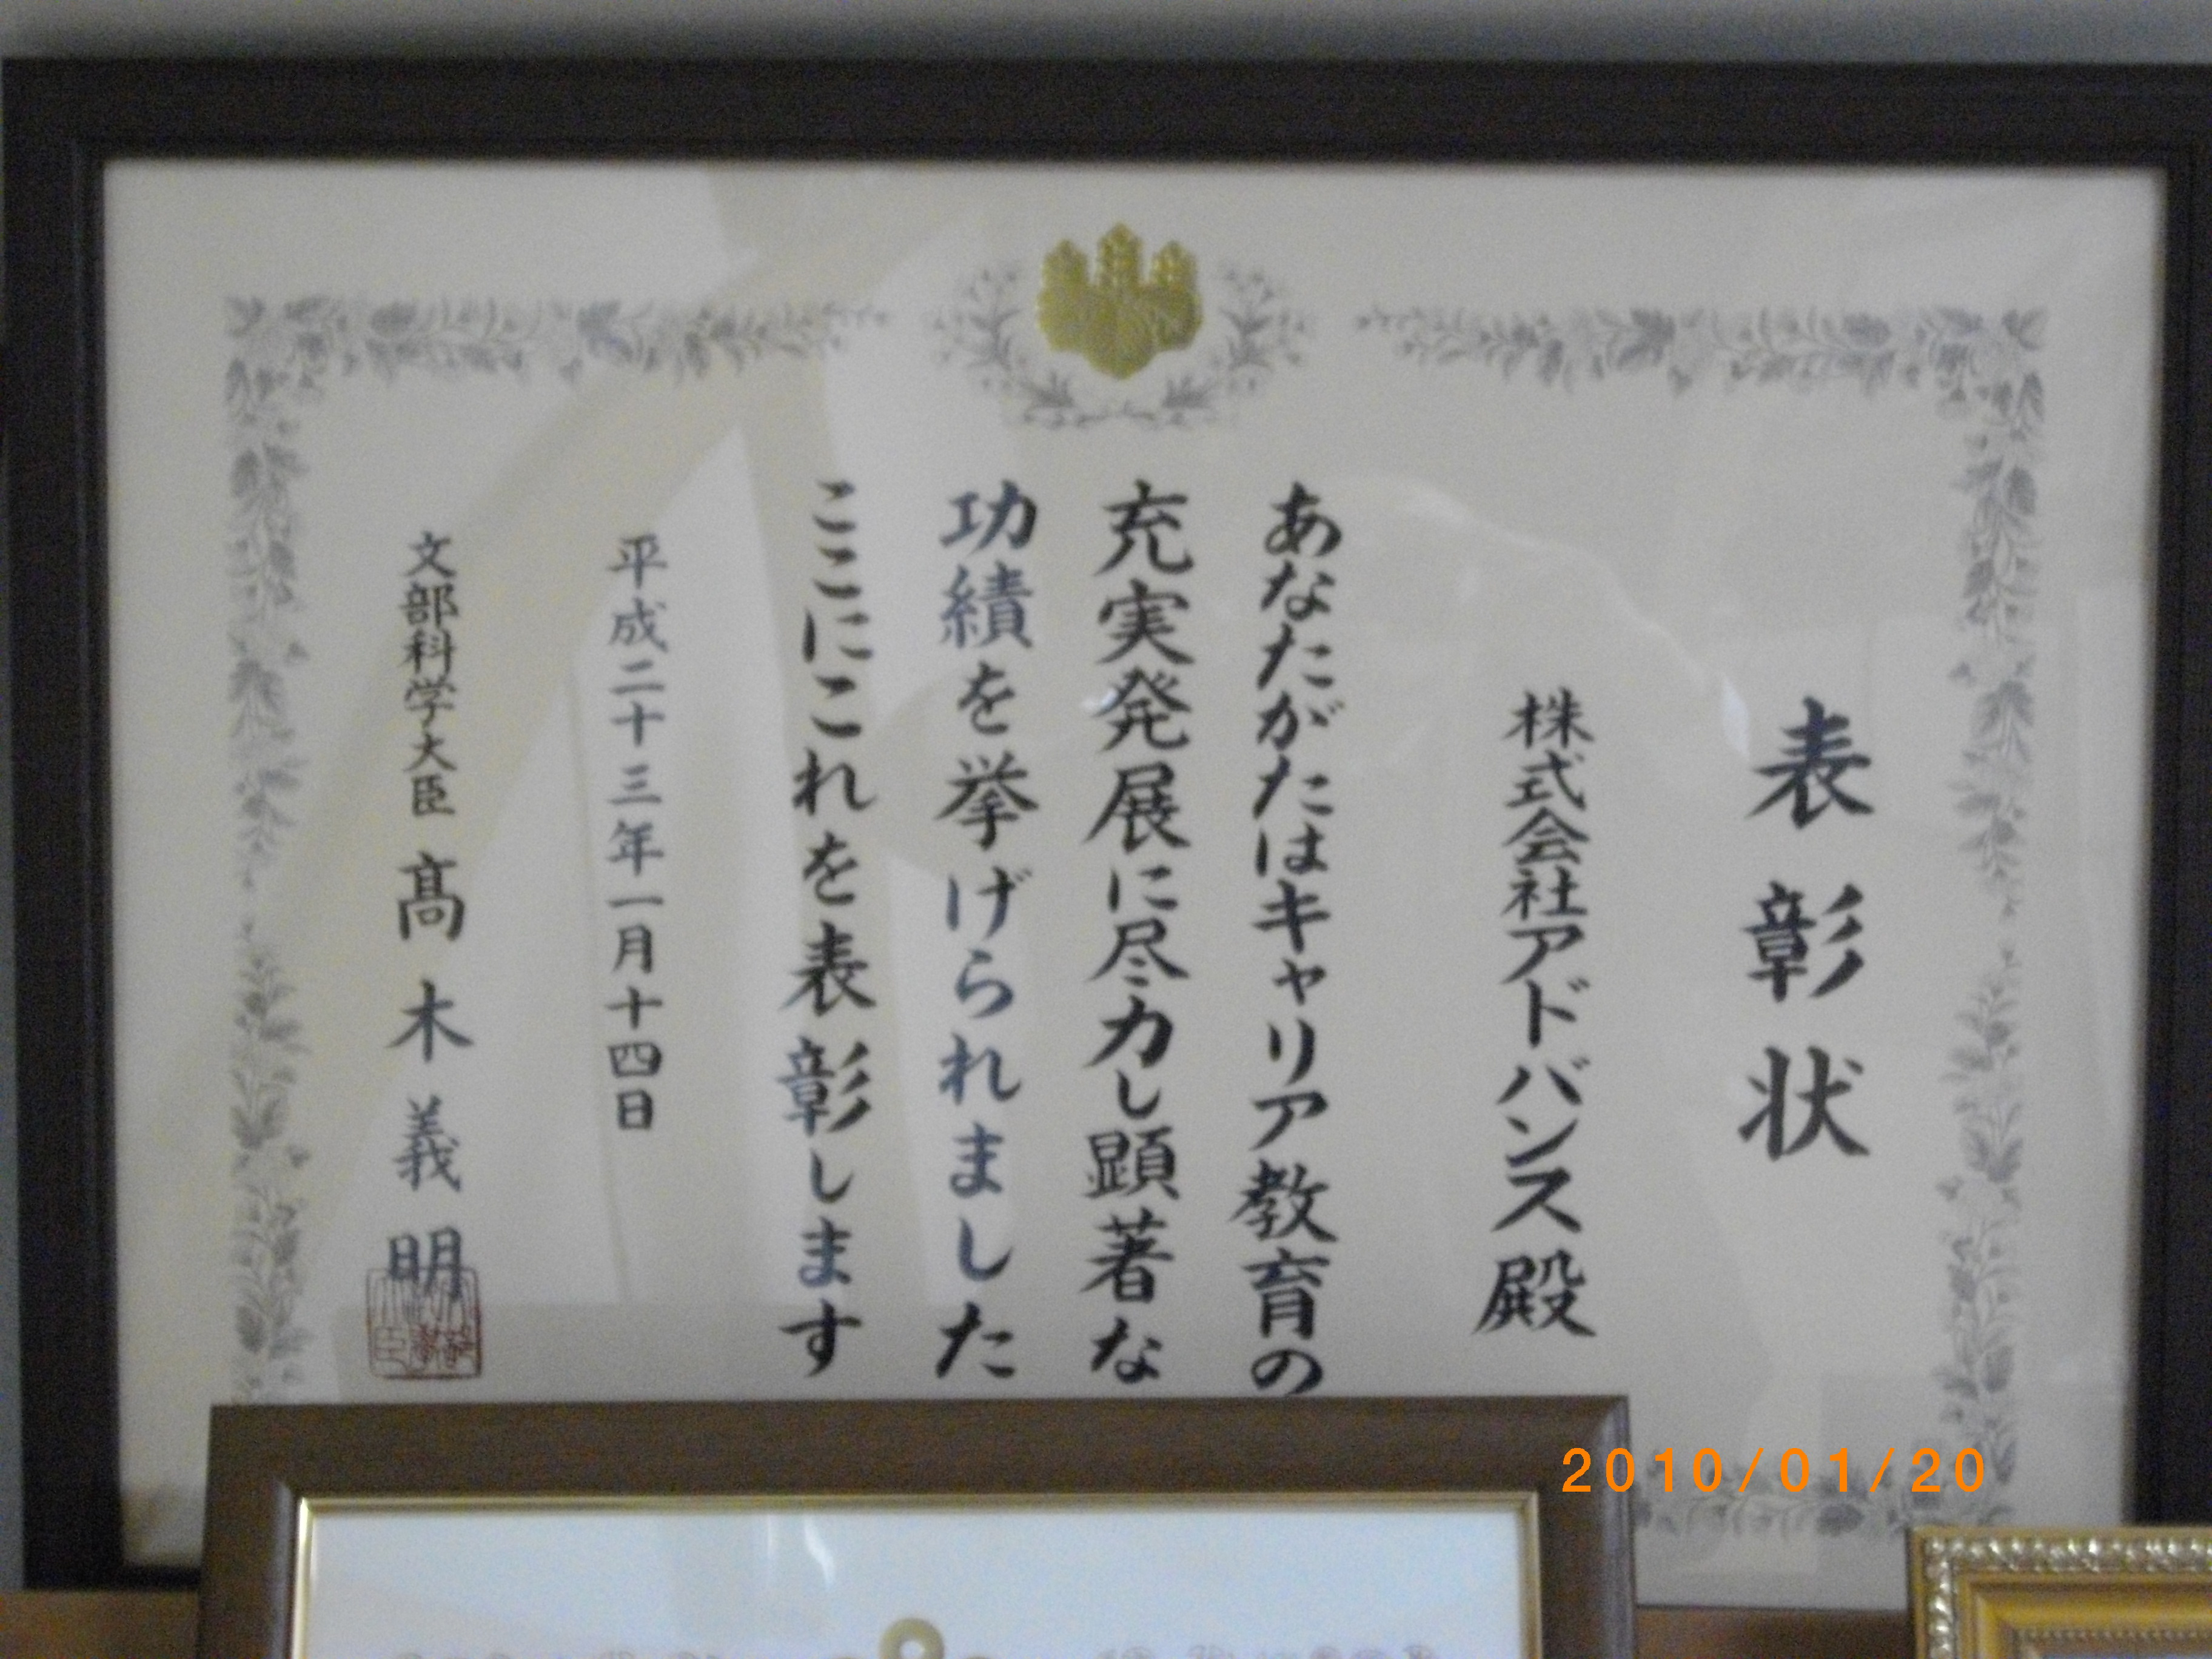 表彰状
株式会社アドバンス殿
あなたがたはキャリア教育の
充実発展に尽力し顕著な
功績を挙げられました
ここにこれを表彰します
平成二十三年一月十四日
文部科学大臣 髙木義明
2010/01/20